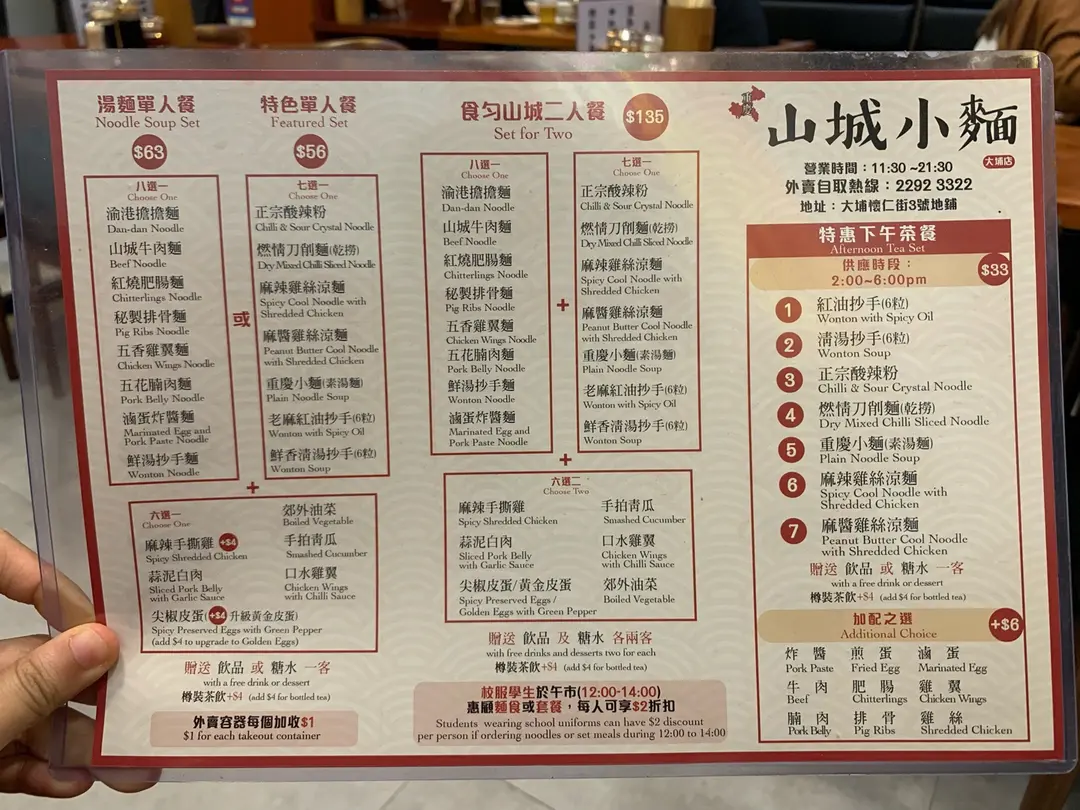 湯麵單人餐
Noodle Soup Set
$63
八選一
Choose One
渝港擔擔麵
Dan-dan Noodle
山城牛肉麵
Beef Noodle
紅燒肥腸麵
Chitterlings Noodle
秘製排骨麵
Pig Ribs Noodle
五香雞翼麵
Chicken Wings Noodle
五花腩肉麵
Pork Belly Noodle
滷蛋炸醬麵
Marinated Egg and
Pork Paste Noodle
鮮湯抄手麵
Wonton Noodle
或
特色單人餐
Featured Set
$56
七選一
Choose One
正宗酸辣粉
Chilli & Sour Crystal Noodle
燃情刀削麵(乾撈)
Dry Mixed Chilli Sliced Noodle
麻辣雞絲涼麵
Spicy Cool Noodle with
Shredded Chicken
麻醬雞絲涼麵
Peanut Butter Cool Noodle
with Shredded Chicken
重慶小麵(素湯麵)
Plain Noodle Soup
老麻紅油抄手(6粒)
Wonton with Spicy Oil
鮮香清湯抄手(6粒)
Wonton Soup
+
六選一
Choose One
麻辣手撕雞 +$4
Spicy Shredded Chicken
蒜泥白肉
Sliced Pork Belly
with Garlic Sauce
尖椒皮蛋(+$4 升級黃金皮蛋)
Spicy Preserved Eggs with Green Pepper
(add $4 to upgrade to Golden Eggs)
郊外油菜
Boiled Vegetable
手拍青瓜
Smashed Cucumber
口水雞翼
Chicken Wings
with Chilli Sauce
贈送 飲品 或 糖水 一客
with a free drink or dessert
樽裝茶飲+$4 (add $4 for bottled tea)
外賣容器每個加收$1
$1 for each takeout container
食勻山城二人餐
Set for Two
$135
八選一
Choose One
渝港擔擔麵
Dan-dan Noodle
山城牛肉麵
Beef Noodle
紅燒肥腸麵
Chitterlings Noodle
秘製排骨麵
Pig Ribs Noodle
五香雞翼麵
Chicken Wings Noodle
五花腩肉麵
Pork Belly Noodle
鮮湯抄手麵
Wonton Noodle
滷蛋炸醬麵
Marinated Egg and
Pork Paste Noodle
+
七選一
Choose One
正宗酸辣粉
Chilli & Sour Crystal Noodle
燃情刀削麵(乾撈)
Dry Mixed Chilli Sliced Noodle
麻辣雞絲涼麵
Spicy Cool Noodle with
Shredded Chicken
麻醬雞絲涼麵
Peanut Butter Cool Noodle
with Shredded Chicken
重慶小麵(素湯麵)
Plain Noodle Soup
老麻紅油抄手(6粒)
Wonton with Spicy Oil
鮮香清湯抄手(6粒)
Wonton Soup
+
六選二
Choose Two
麻辣手撕雞
Spicy Shredded Chicken
蒜泥白肉
Sliced Pork Belly
with Garlic Sauce
尖椒皮蛋/黃金皮蛋
Spicy Preserved Eggs /
Golden Eggs with Green Pepper
手拍青瓜
Smashed Cucumber
口水雞翼
Chicken Wings
with Chilli Sauce
郊外油菜
Boiled Vegetable
贈送 飲品 及 糖水 各兩客
with free drinks and desserts two for each
樽裝茶飲+$4 (add $4 for bottled tea)
校服學生於午市(12:00-14:00)
惠顧麵食或套餐，每人可享$2折扣
Students wearing school uniforms can have $2 discount
per person if ordering noodles or set meals during 12:00 to 14:00
重慶
山城小麵
大埔店
營業時間：11:30 ~21:30
外賣自取熱線：2292 3322
地址：大埔懷仁街3號地鋪
特惠下午茶餐
Afternoon Tea Set
供應時段：
2:00~6:00pm
$33
1 紅油抄手(6粒)
Wonton with Spicy Oil
2 清湯抄手(6粒)
Wonton Soup
3 正宗酸辣粉
Chilli & Sour Crystal Noodle
4 燃情刀削麵(乾撈)
Dry Mixed Chilli Sliced Noodle
5 重慶小麵(素湯麵)
Plain Noodle Soup
6 麻辣雞絲涼麵
Spicy Cool Noodle with
Shredded Chicken
7 麻醬雞絲涼麵
Peanut Butter Cool Noodle
with Shredded Chicken
贈送 飲品 或 糖水 一客
with a free drink or dessert
樽裝茶飲+$4 (add $4 for bottled tea)
加配之選
Additional Choice
+$6
炸醬 煎蛋 滷蛋
Pork Paste Fried Egg Marinated Egg
牛肉 肥腸 雞翼
Beef Chitterlings Chicken Wings
腩肉 排骨 雞絲
Pork Belly Pig Ribs Shredded Chicken